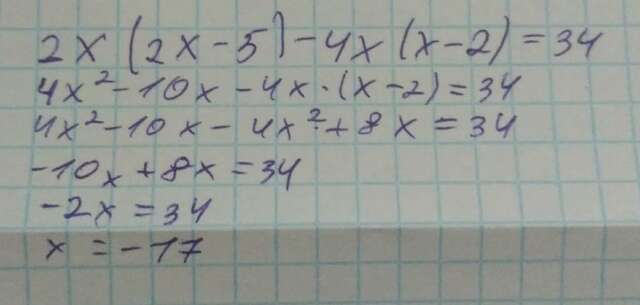 2x(2x-5)-4x(x-2)=34
4x²-10x-4x·(x-2)=34
4x²-10x-4x²+8x=34
-10x+8x=34
-2x=34
x=-17